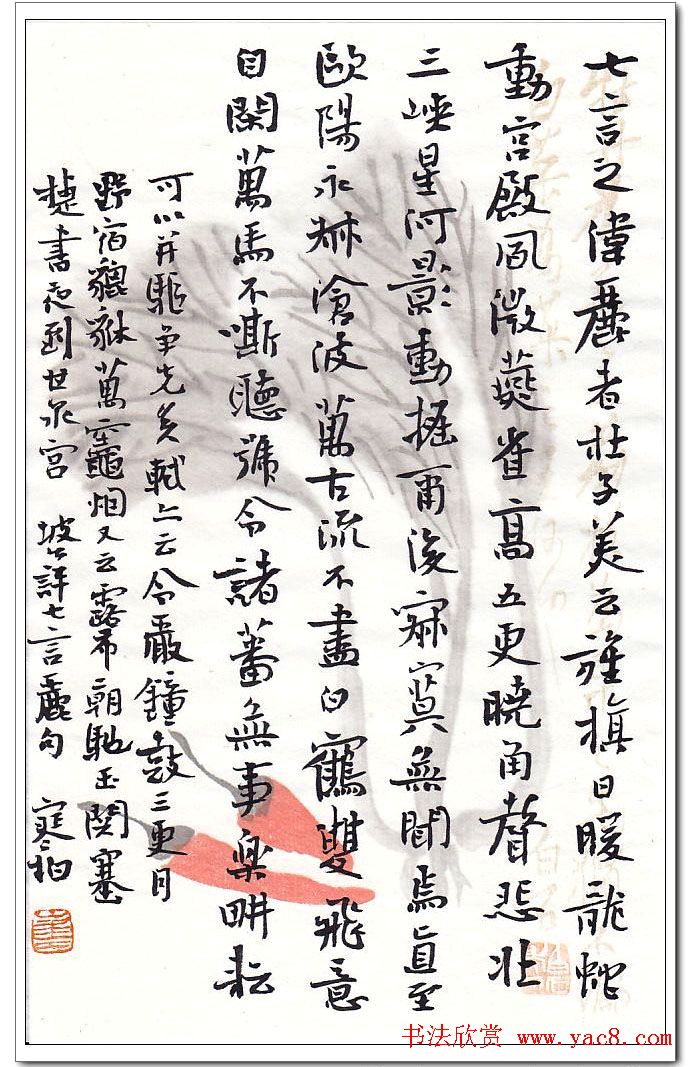 七言之偉麗者杜子美云旌旗日暖龍蛇
動宮殿風微燕雀高五更曉角聲悲壯
三峽星河影動搖爾後寂寞無聞焉直至
歐陽永叔滄波萬古流不盡白鶴雙飛意
自閑萬馬不嘶聽號令諸蕃無事樂耕耘
可以并驅爭先矣軾亦云令嚴鐘鼓三更月
野宿貔貅萬竈烟又云露布朝馳玉關塞
捷書夜到甘泉宮 坡公評七言麗句 寒柏
书法欣赏 www.yac8.com